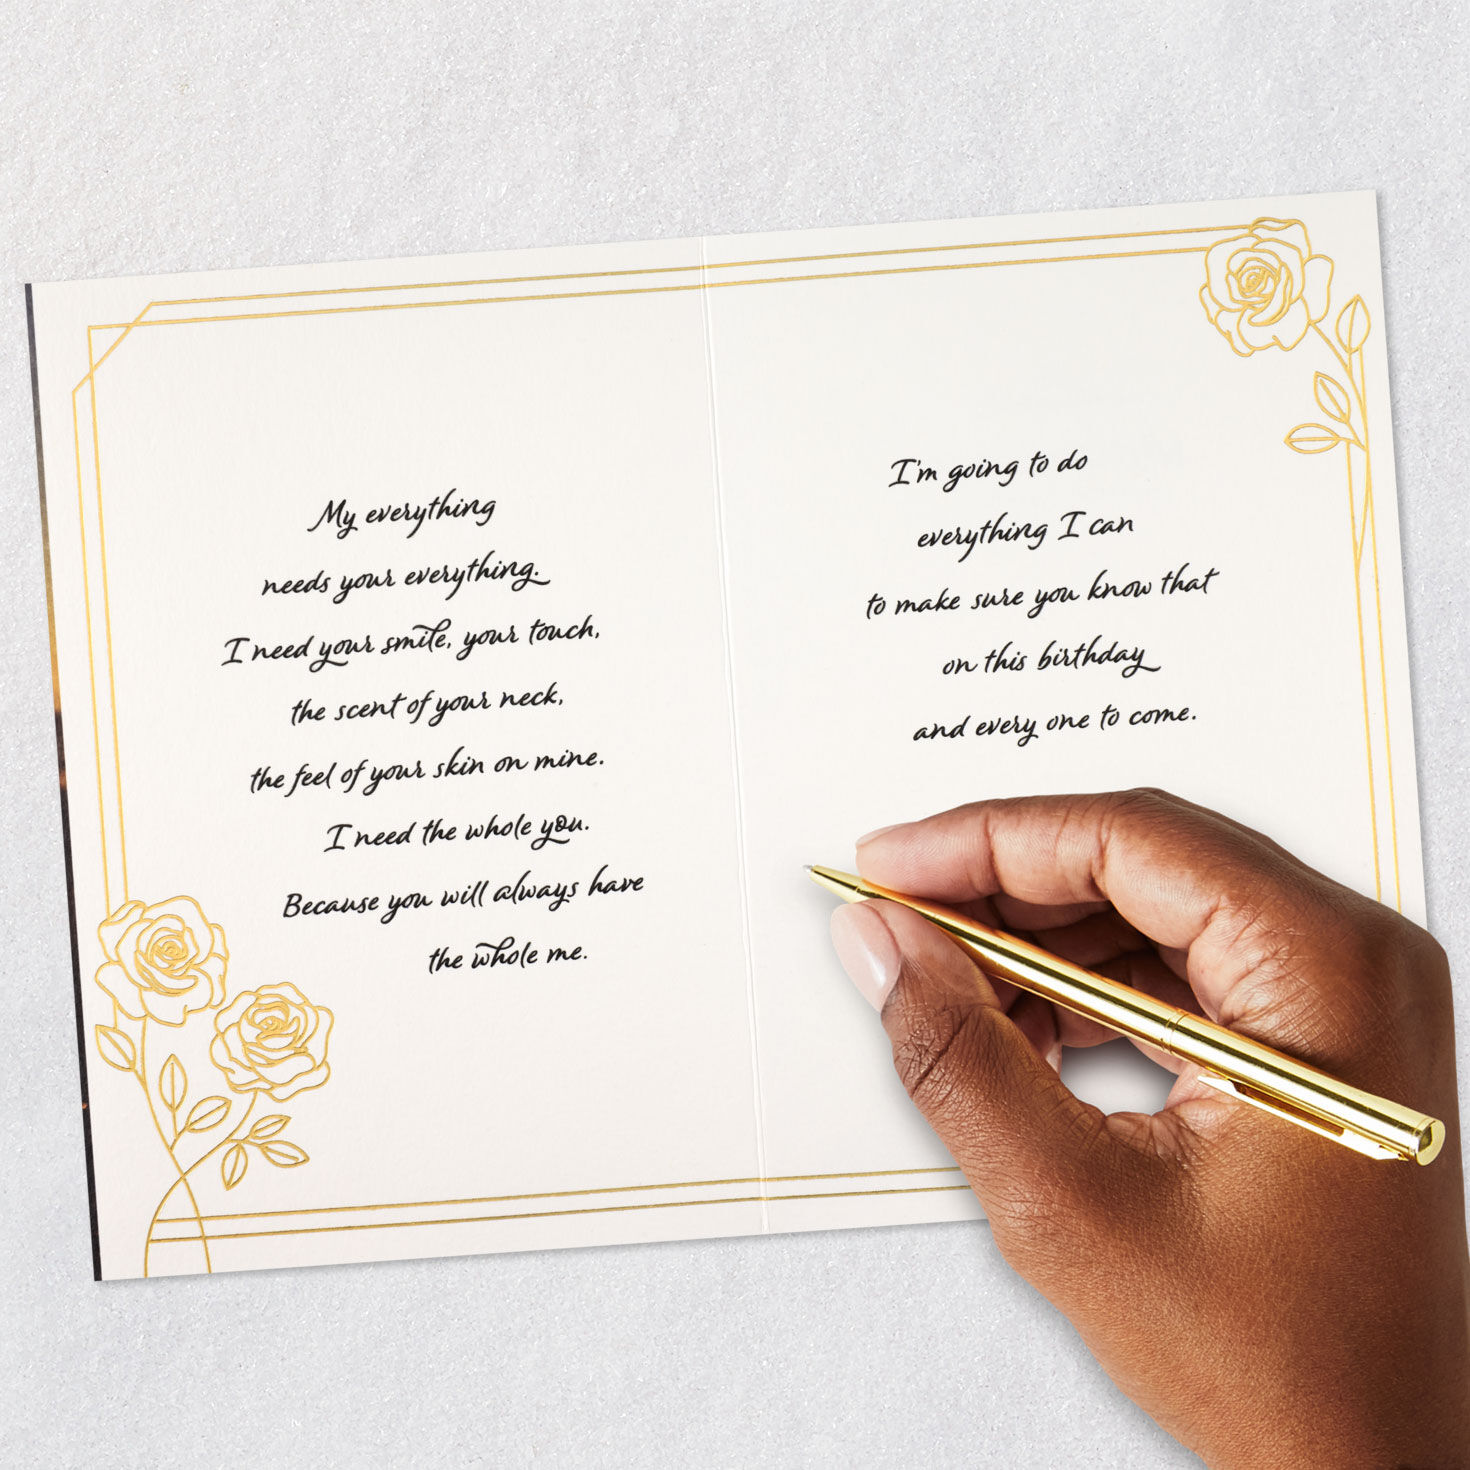 My everything
needs your everything.
I need your smile, your touch,
the scent of your neck,
the feel of your skin on mine.
I need the whole you.
Because you will always have
the whole me.
I'm going to do
everything I can
to make sure you know that
on this birthday
and every one to come.